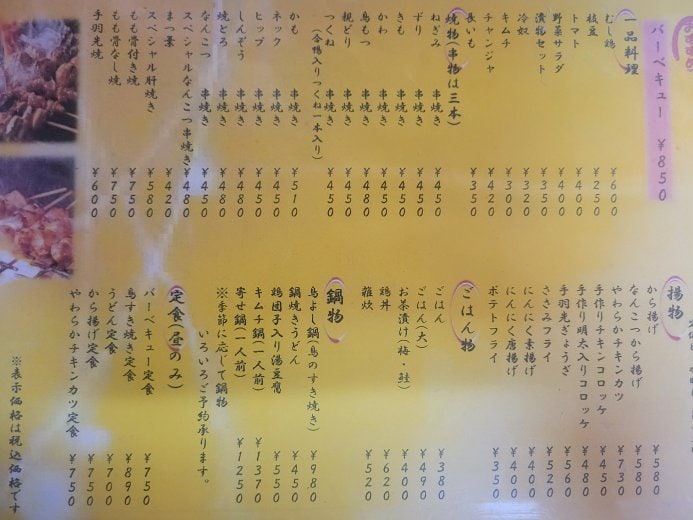 バーベキュー ¥850
一品料理
むし鶏 ¥600
枝豆 ¥250
トマト ¥400
野菜サラダ ¥400
漬物セット ¥350
冷奴 ¥320
キムチ ¥300
チャンジャ ¥420
長いも ¥350
焼物(串物は三本)
ねぎみ 串焼き ¥450
ずり 串焼き ¥450
きも 串焼き ¥450
かわ 串焼き ¥450
鳥もつ 串焼き ¥480
親どり 串焼き ¥450
つくね 串焼き ¥450
(合鴨入りつくね一本入り)
かも 串焼き ¥510
ネック 串焼き ¥450
ヒップ 串焼き ¥450
しんぞう 串焼き ¥480
焼どろ 串焼き ¥480
なんこつ 串焼き ¥450
スペシャルなんこつ串焼き ¥480
まつ葉 ¥420
スペシャル肝焼き ¥580
もも骨付き焼き ¥750
もも骨なし焼き ¥750
手羽先焼 ¥600
揚物
から揚げ ¥580
なんこつから揚げ ¥580
やわらかチキンカツ ¥730
手作りチキンコロッケ ¥450
手作り明太入りコロッケ ¥480
手羽先ぎょうざ ¥560
ささみフライ ¥520
にんにく素揚げ ¥400
にんにく唐揚げ ¥400
ポテトフライ ¥350
ごはん物
ごはん ¥380
ごはん(大) ¥490
お茶漬け(梅・鮭) ¥400
鶏丼 ¥620
雑炊 ¥520
鍋物
鳥よし鍋(鳥のすき焼き) ¥980
鍋焼きうどん ¥450
鶏団子入り湯豆腐 ¥550
キムチ鍋(一人前) ¥1370
寄せ鍋(一人前) ¥1250
※季節に応じて鍋物
いろいろご予約承ります。
定食(昼のみ)
バーベキュー定食 ¥750
鳥すき焼き定食 ¥890
うどん定食 ¥700
から揚げ定食 ¥700
やわらかチキンカツ定食 ¥750
※表示価格は税込価格です